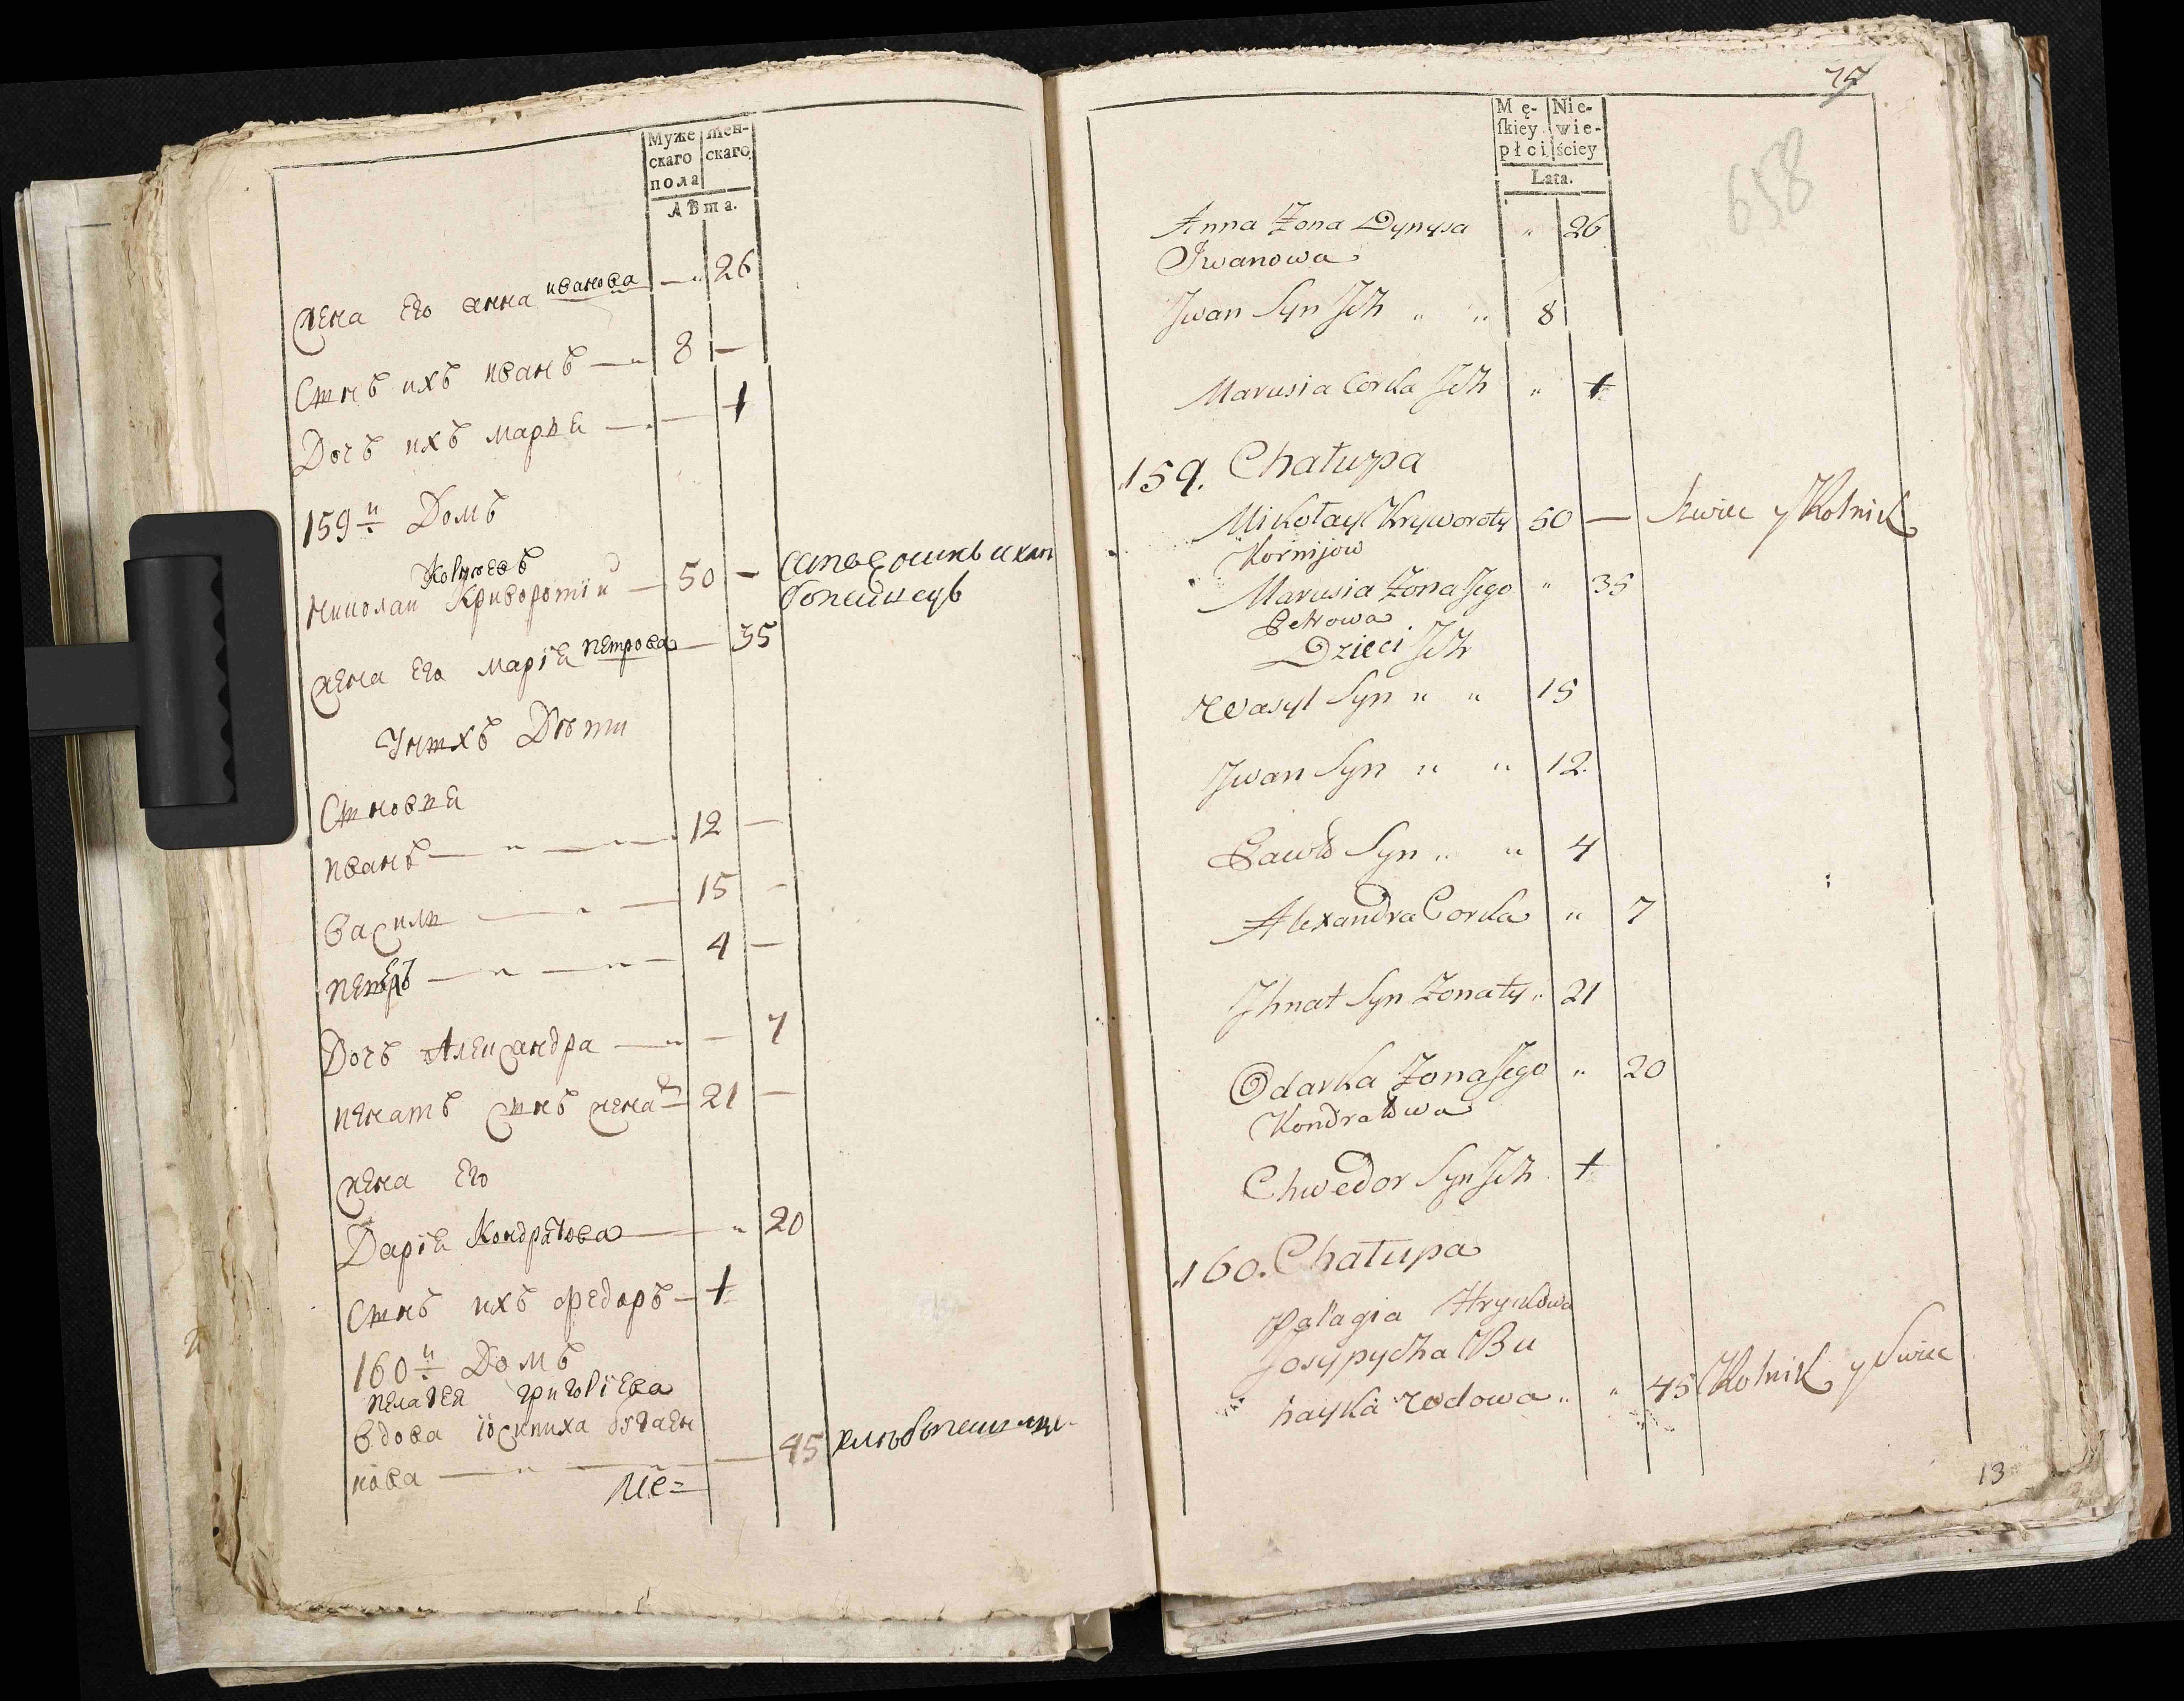 Муже скаго пола
жен- скаго
Лѣта.
жена его анна иванова — " 26
Сынъ ихъ иванъ — " 8 —
Дочъ ихъ марья — " — 1
159й Домъ
Корнѣевъ
николаи Криворотїи — 50 —
жена его марїя петрова — 35
У нихъ Дѣти
Сыновья
иванъ — " — " 12 —
василь — " — 15 —
петръ — " — " — 4 —
Дочъ Александра — " — 7
игнатъ сынъ жена — 21 —
жена его
Дарїя Кондратова — " 20
Сынъ ихъ федоръ — 1
160й Домъ
пелагея григорїева
вдова їосипиха
кова — " — " — 45
77
658
Mę- skiey płci
Nie- wie- ściey
Lata.
Anna Żona Dynysa " 26
Iwanowa
Iwan Syn Ich " " 8
Marusia Corka Ich " 1
159. Chałupa
Mikołay Kryworoty 50 — Szwiec y Rolnik
Kornijow
Marusia Żona Jego " 35
Petrowa
Dzieci Ich
Wasyl Syn " " 15
Iwan Syn " " 12.
Pawło Syn " " 4
Alexandra Corka " 7
Ihnat Syn Żonaty " 21
Odarka Żona Jego " 20
Kondratowa
Chwedor Syn Ich 1
160. Chałupa
Pałagia Hryckowa
Josypycha Bu
hayka wdowa " " 45 Rolnik y Szwiec
13